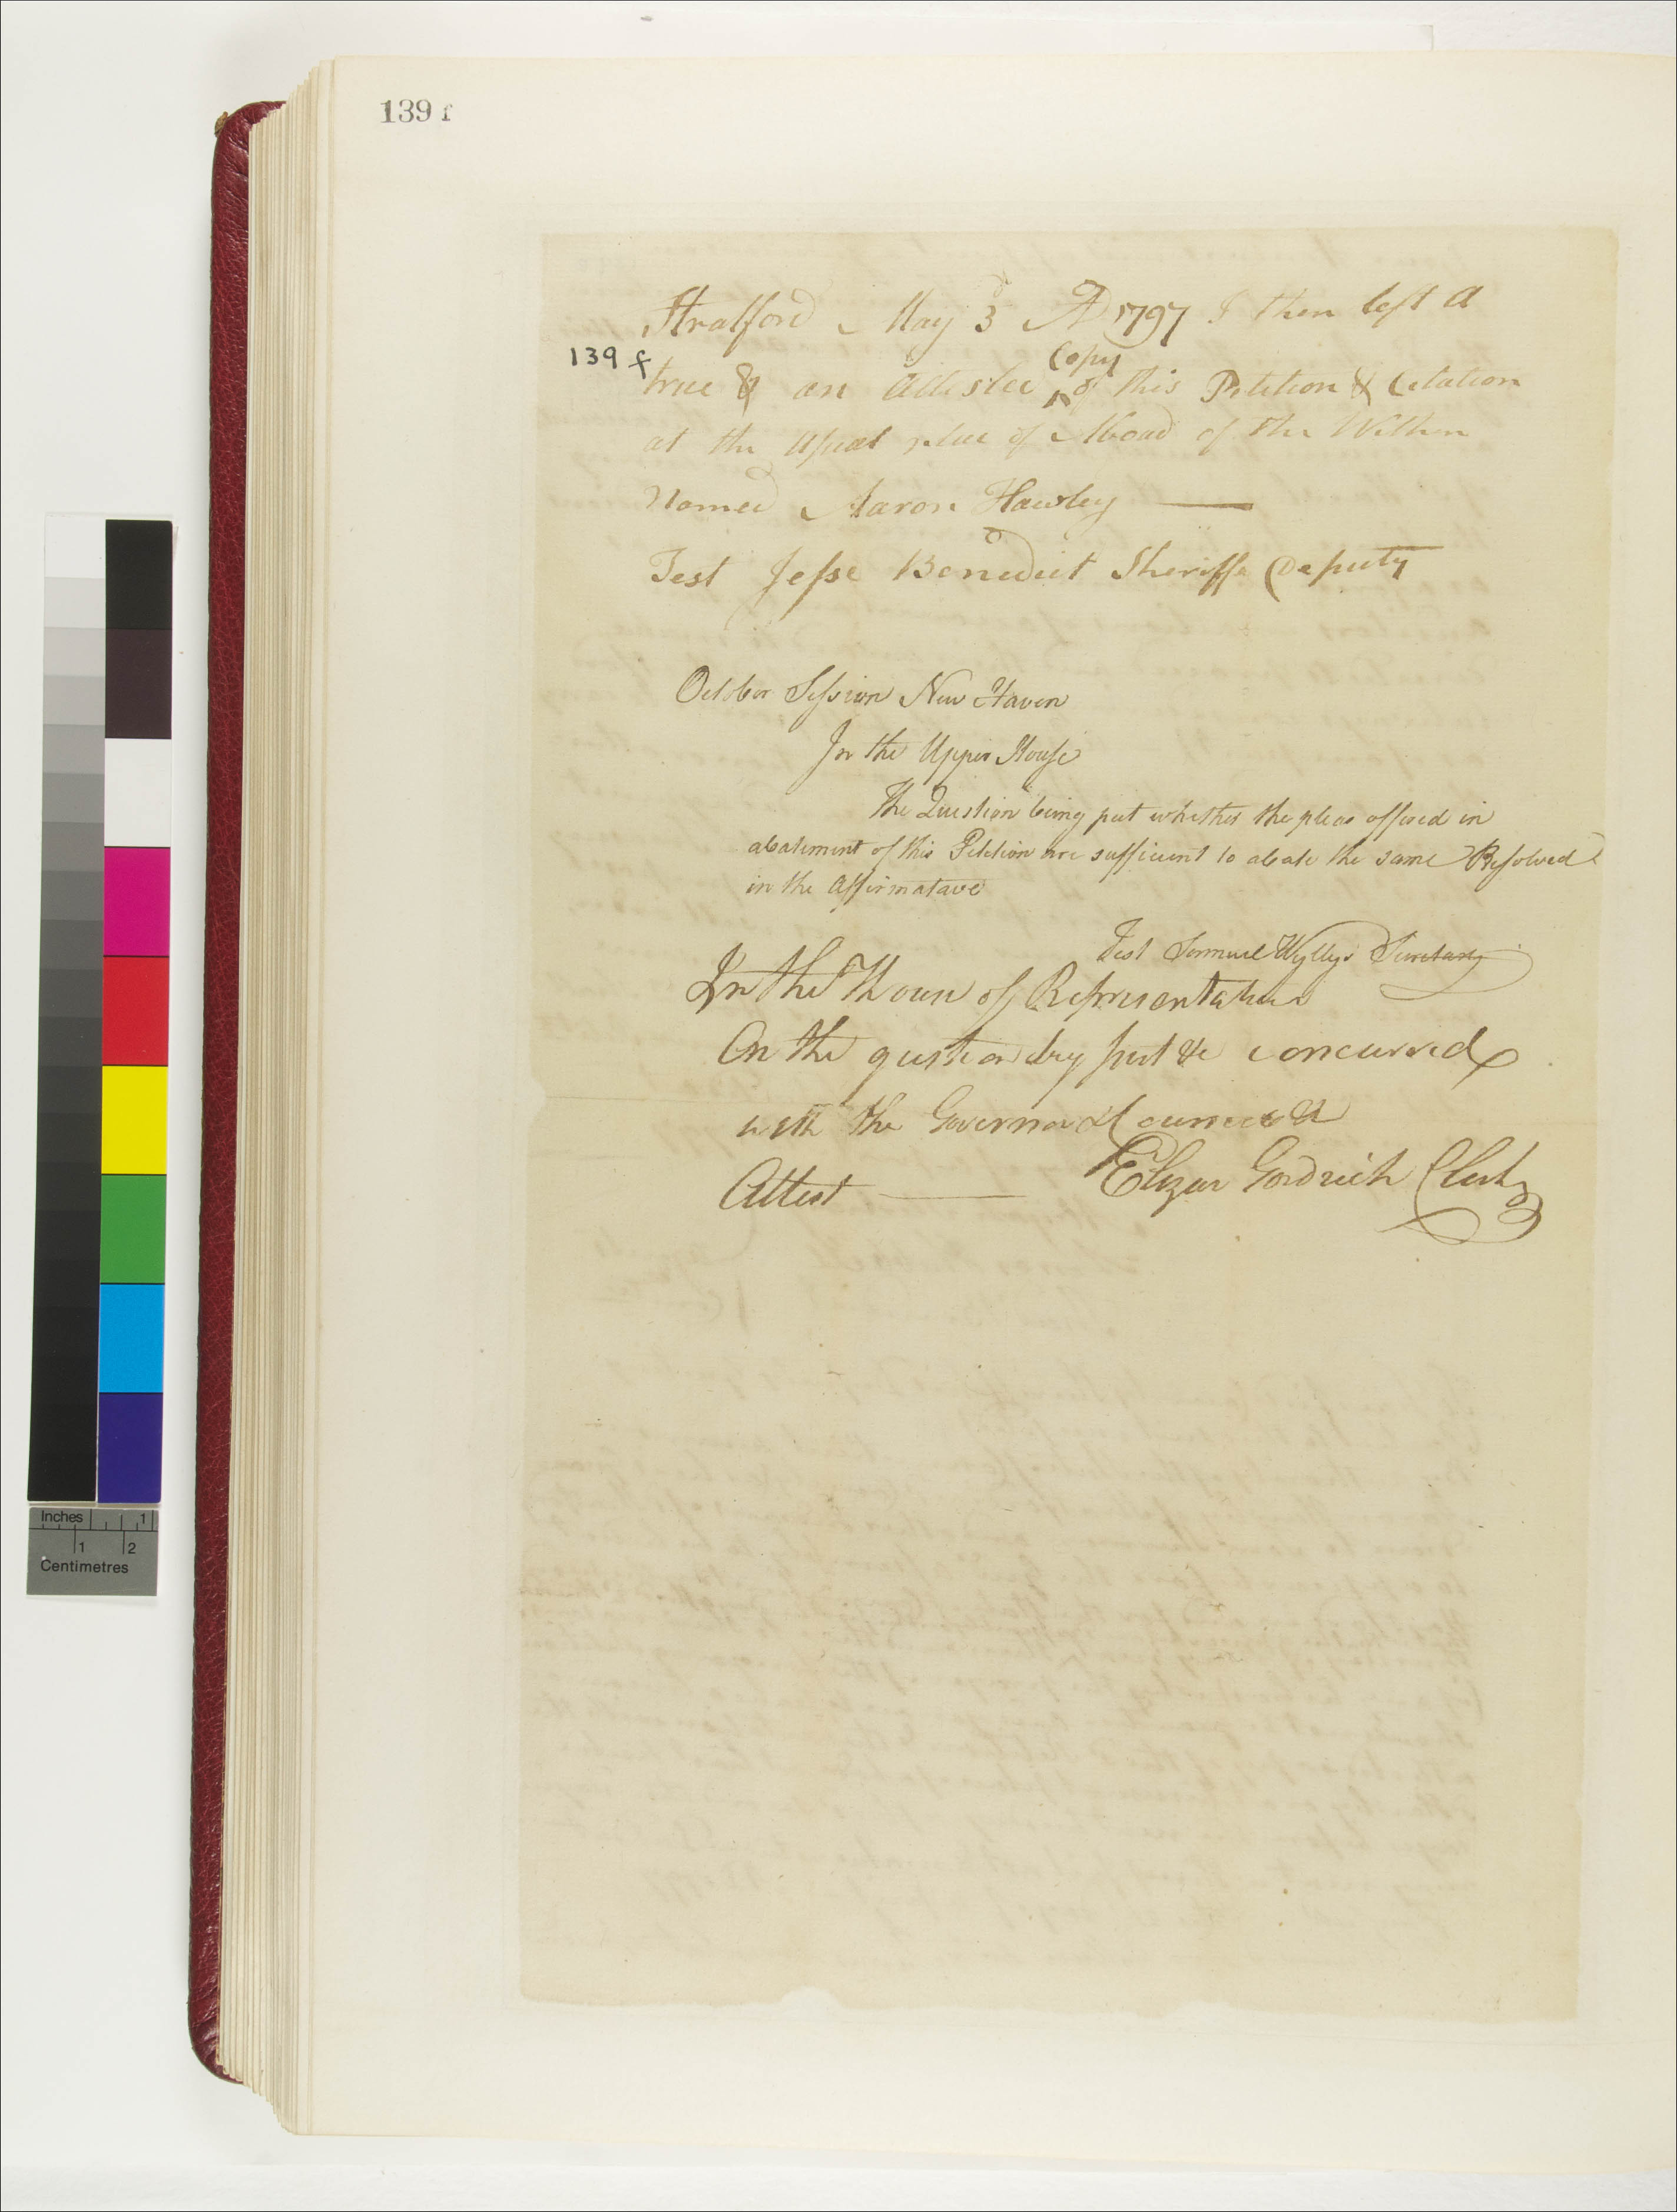 139 f
Stratford May 3d AD 1797 I then left a
139 f
Copy
true & an Attested ^ of this Petition & Citation
at the Usual place of Aboad of the Within
Named Aaron Hawley —
Test Jesse Benedict Sheriffs Deputy
October Session New Haven
In the Upper House
The Question being put whether the pleas offered in
abatement of this Petition are sufficient to abate the same Resolved
in the Affirmatave
Test Samuel Wyllys Secretary
In the House of Representatives
On the question being put &c concurred
with the Governor & Council
Attest — Elizur Goodrich Clerk
Inches 1
1 2
Centimetres